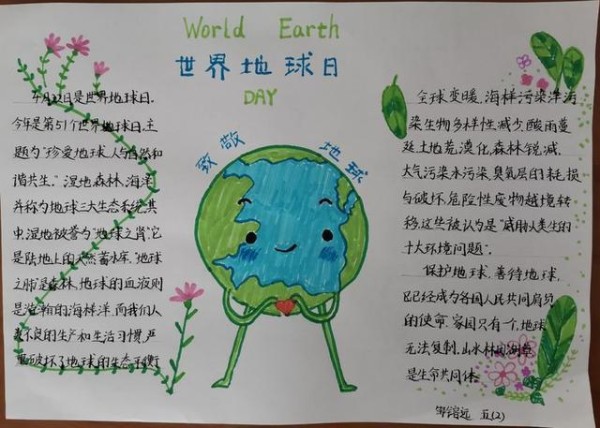 World Earth
世界地球日
DAY
致敬 地球
4月22日是世界地球日。
今年是第51个世界地球日,主
题为"珍爱地球,人与自然和
谐共生。"湿地、森林、海洋
并称为地球三大生态系统,其
中,湿地被誉为"地球之肾",它
是陆地上的天然蓄水库。"地球
之肺"是森林,地球的血液则
是浩瀚的海洋,而我们人
不良的生产和生活习惯,严
重破坏了地球的生态平衡
全球变暖,海洋污染,海洋
染,生物多样性减少,酸雨蔓
延,土地荒漠化,森林锐减,
大气污染,水污染,臭氧层的耗损
与破坏,危险性废物越境转
移,这些被认为是"威胁人类生的
十大环境问题"。
保护地球,善待地球,
已经成为各国人民共同肩负
的使命。家园只有一个,地球
无法复制。山水林田湖草
是生命共同体。
五(2)